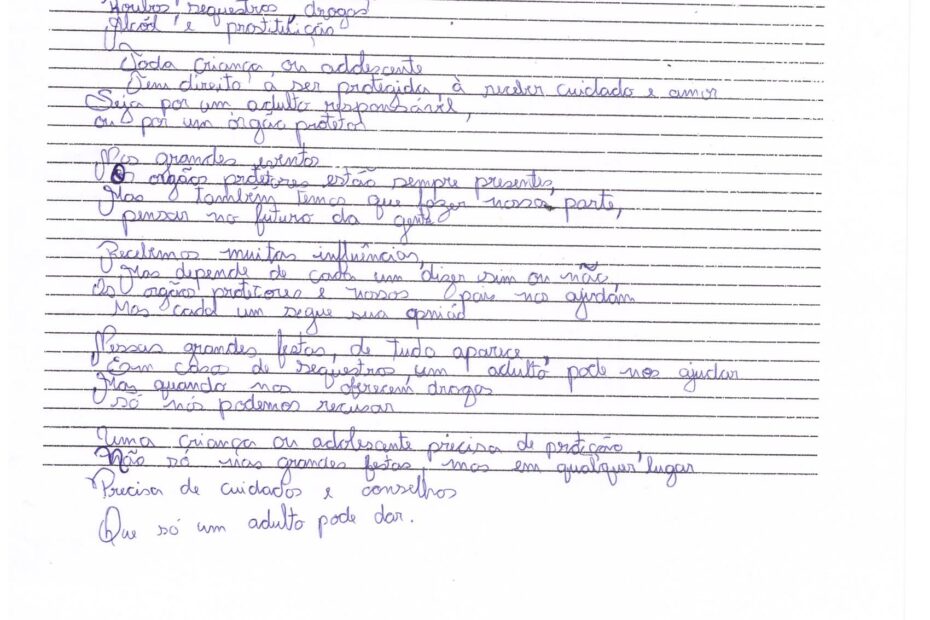 Roubos, sequestros, drogas
Alcól e prostituição
Toda criança ou addescente
Tem direito a ser protegida, à receber cuidado e amor
Seja por um adulto responsável,
ou por um órgão protetor
Nos grandes eventos
Os orgãos protetores estão sempre presentes,
Mas também temos que fazer nossa parte,
pensar no futuro da gente
Recebemos muitas influências,
Mas depende de cada um dizer sim ou não,
Os orgãos protitores e nossos pais nos ajudam
Mas cada um segue sua opnião
Nessas grandes festas, de tudo aparece
Eem caso de sequestros, um adulto pode nos ajudar
Mas quando nos oferecem drogas
só nós podemos recusar
Uma criança ou adolescente precisa de proteção,
Não só nas grandes festas, mas em qualquer lugar
Precisa de cuidados e conselhos
Que só um adulto pode dar.